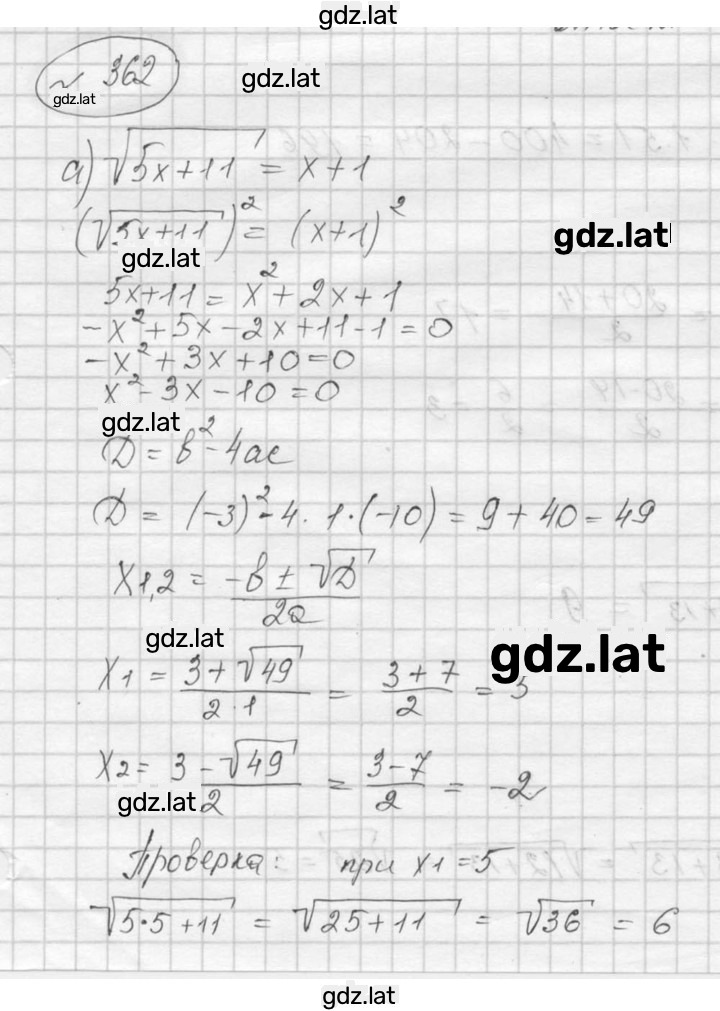 gdz.lat
№ 362
gdz.lat
gdz.lat
а) √5x+11 = x+1
(√5x+11)² = (x+1)²
gdz.lat
gdz.lat
5x+11 = x²+2x+1
-x²+5x-2x+11-1=0
-x²+3x+10=0
x²-3x-10=0
gdz.lat
D = b²-4ac
D = (-3)²-4·1·(-10) = 9+40=49
x1,2 = -b±√D / 2a
gdz.lat
gdz.lat
x1 = 3+√49 / 2·1 = 3+7 / 2 = 5
x2 = 3-√49 / 2 = 3-7 / 2 = -2
gdz.lat
Проверка: при x1=5
√5·5+11 = √25+11 = √36 = 6
gdz.lat